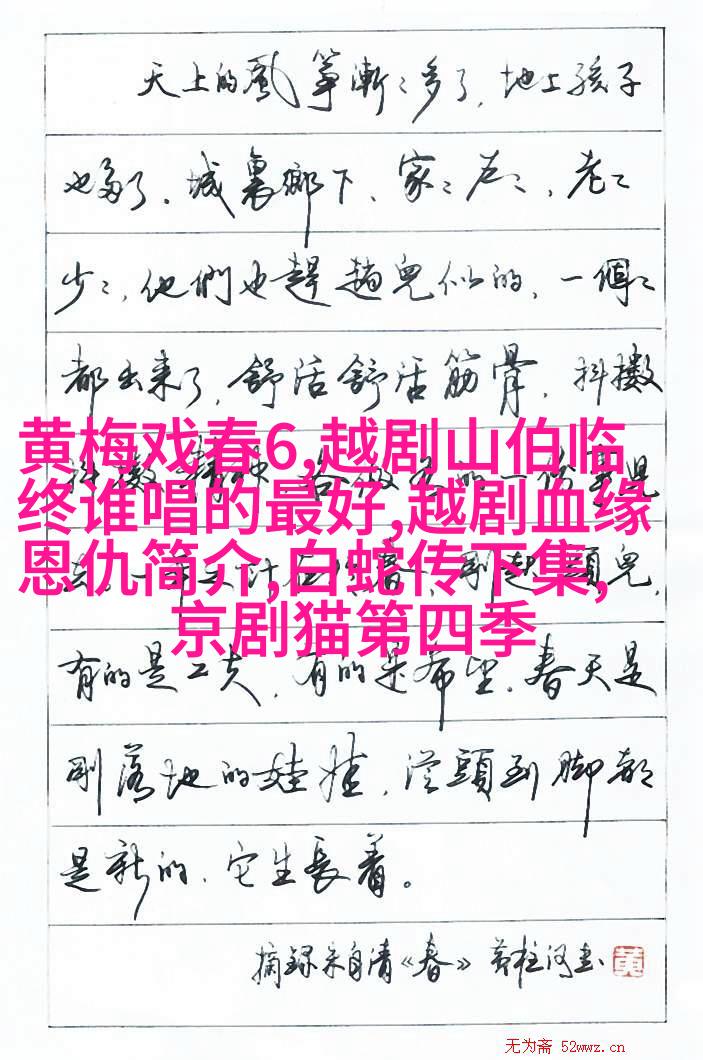 天上的風箏漸〻多了，地上孩子
也多了。城裏鄉下，家〻户〻，老〻
少〻，他們也趕趟兒似的，一個〻
都出来了，舒活舒活筋骨，抖擻
黄梅戏春6,越剧山伯临
终谁唱的最好,越剧血缘
恩仇简介,白蛇传下集,
京剧猫第四季
有的是工夫，有的是希望。春天是
剛落地的娃娃，從頭到脚都
是新的，它生長着。
摘録朱自清《春》黄柱河書 黄
无为斋 52wwz.cn